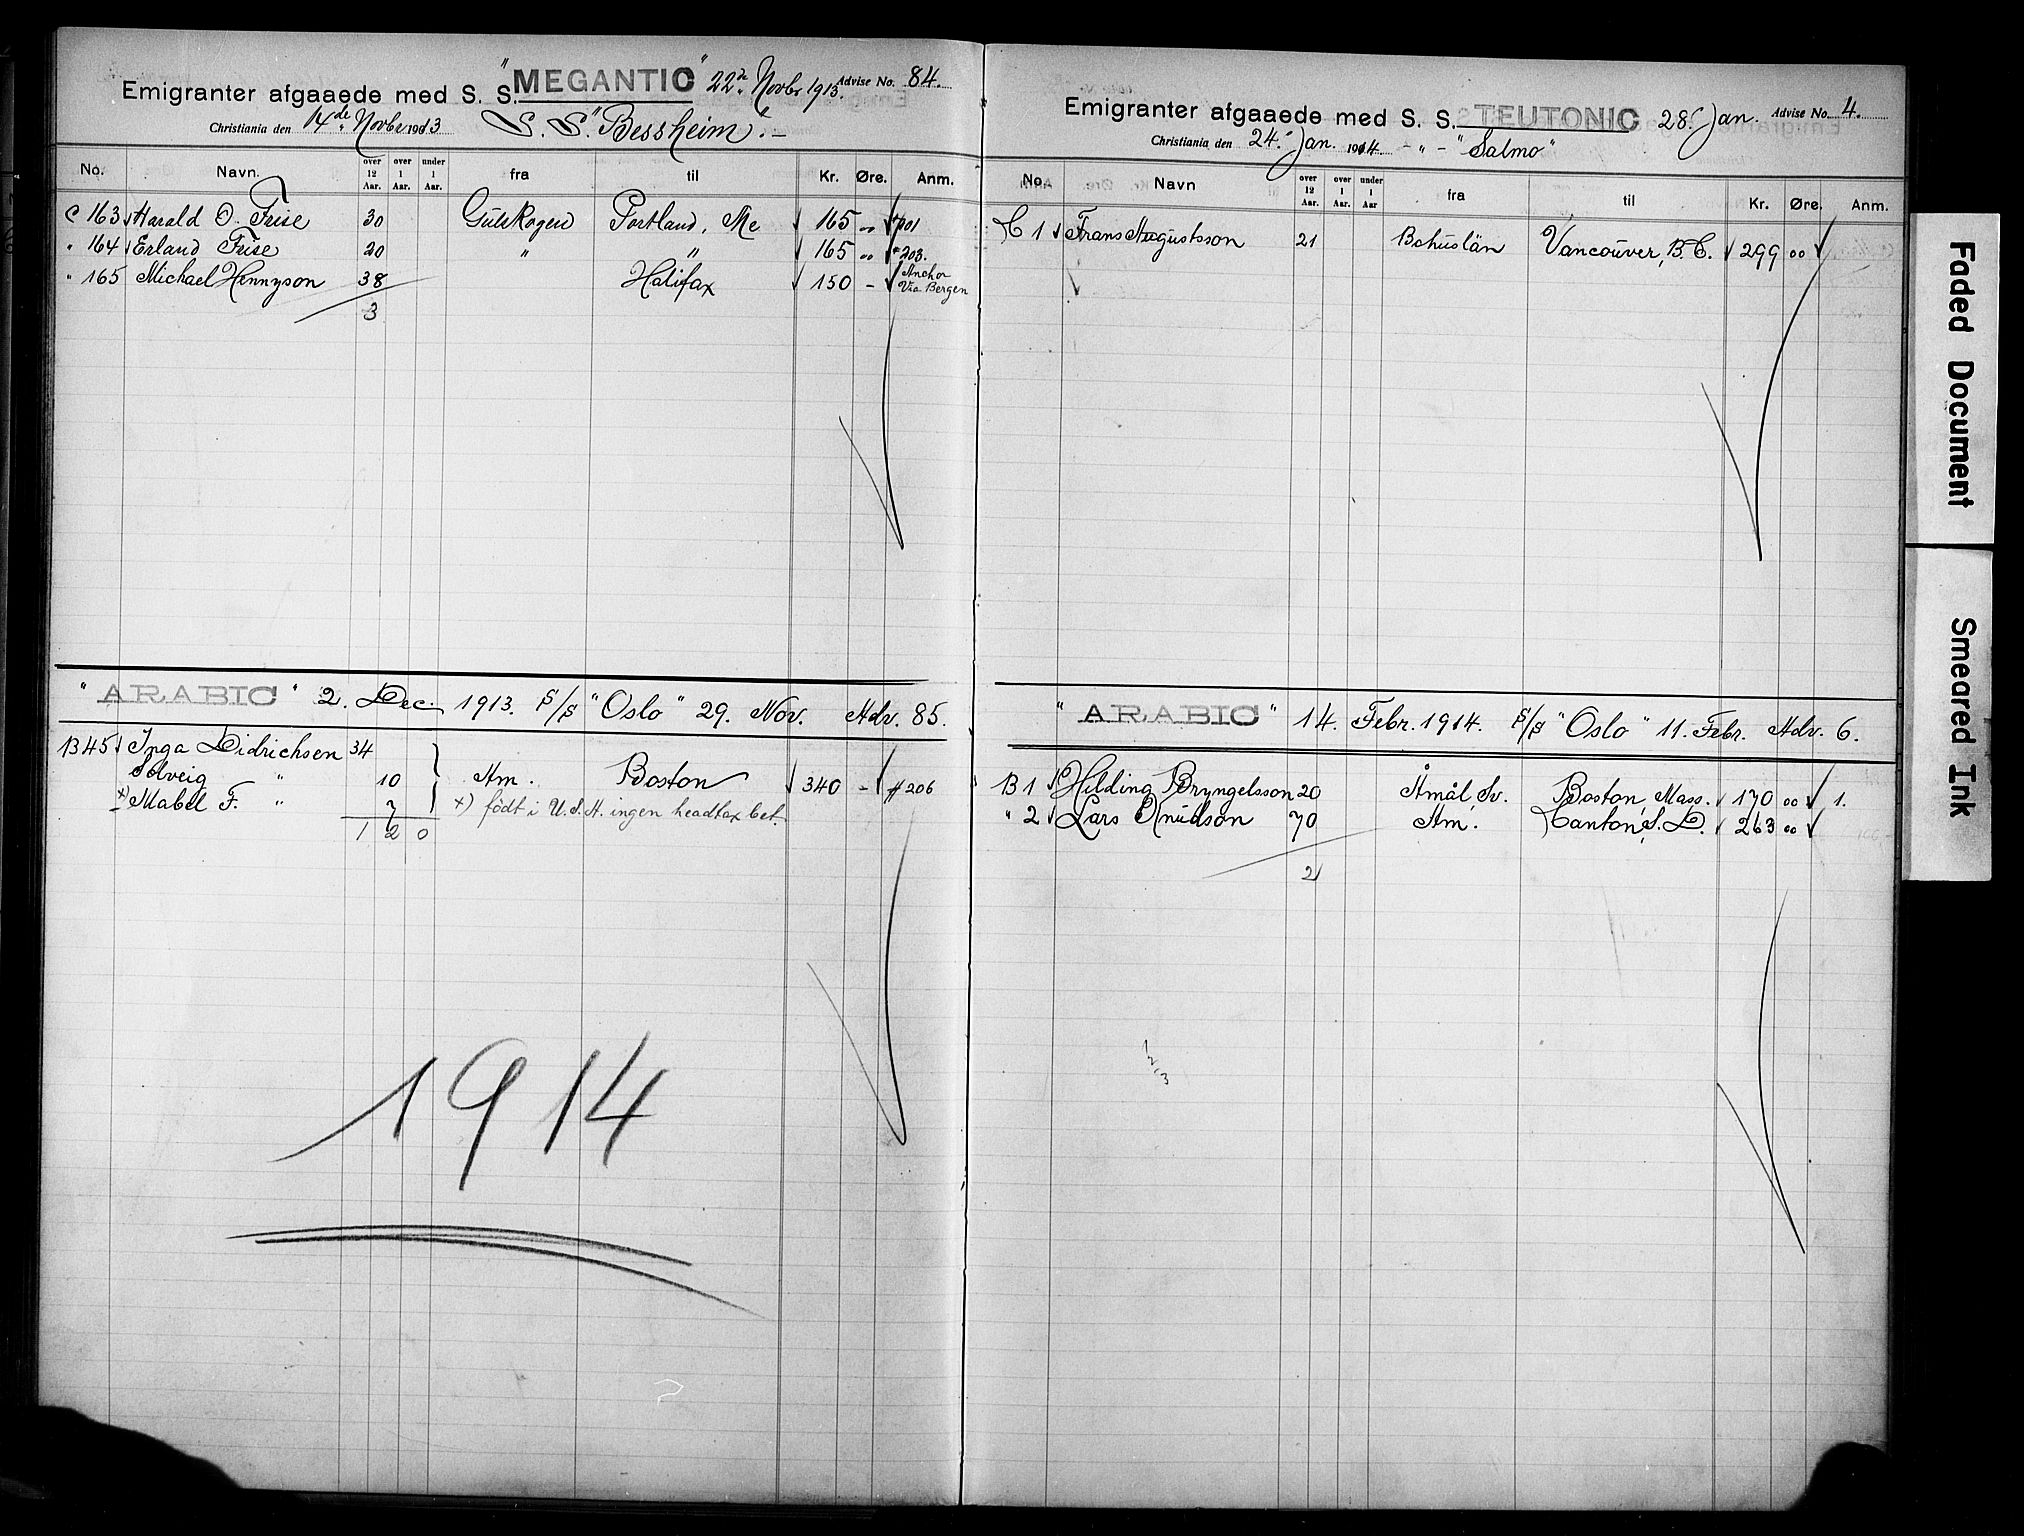 Emigranter afgaaede med S. S. "MEGANTIC" 22de Novbr 1913. Advise No. 84.
Christiania den 14de Novbr 1913 S. S. "Bessheim". -
No. Navn. over 12 Aar. over 1 Aar. under 1 Aar. fra til Kr. Øre. Anm.
C 163 Harald O. Frise 30 Gulskogen Portland, Me 165 00
" 164 Erland Frise 20 " " 165 00 # 203.
" 165 Michael Hennyson 38 Halifax 150 - Anchor Via Bergen
3
" ARABIC " 2. Dec. 1913. S/S "Oslo" 29. Nov. Adv. 85.
B 45 Inga Didrichsen 34
Solveig " 10 Am. Boston 340 - # 206
x) Mabel F. " 7 x) födt i U.S.A. ingen headtax bet.
1 2 0
1914
Emigranter afgaaede med S. S. TEUTONIC 28. Jan. Advise No. 4.
Christiania den 24. Jan. 1914. - " - "Salmo"
No. Navn over 12 Aar. over 1 Aar. under 1 Aar fra til Kr. Øre. Anm.
C 1 Frans Augustsson 21 Bohuslän Vancouver, B.C. 299 00
" ARABIC " 14. Febr. 1914. S/S "Oslo" 11. Febr. Adv. 6.
B 1 Hilding Bryngelsson 20 Åmål, Sv. Boston, Mass. 170 00 1.
" 2 Lars Knudson 70 Am. Canton, S. D. 263 00
2
1
2
3
Faded Document
Smeared Ink